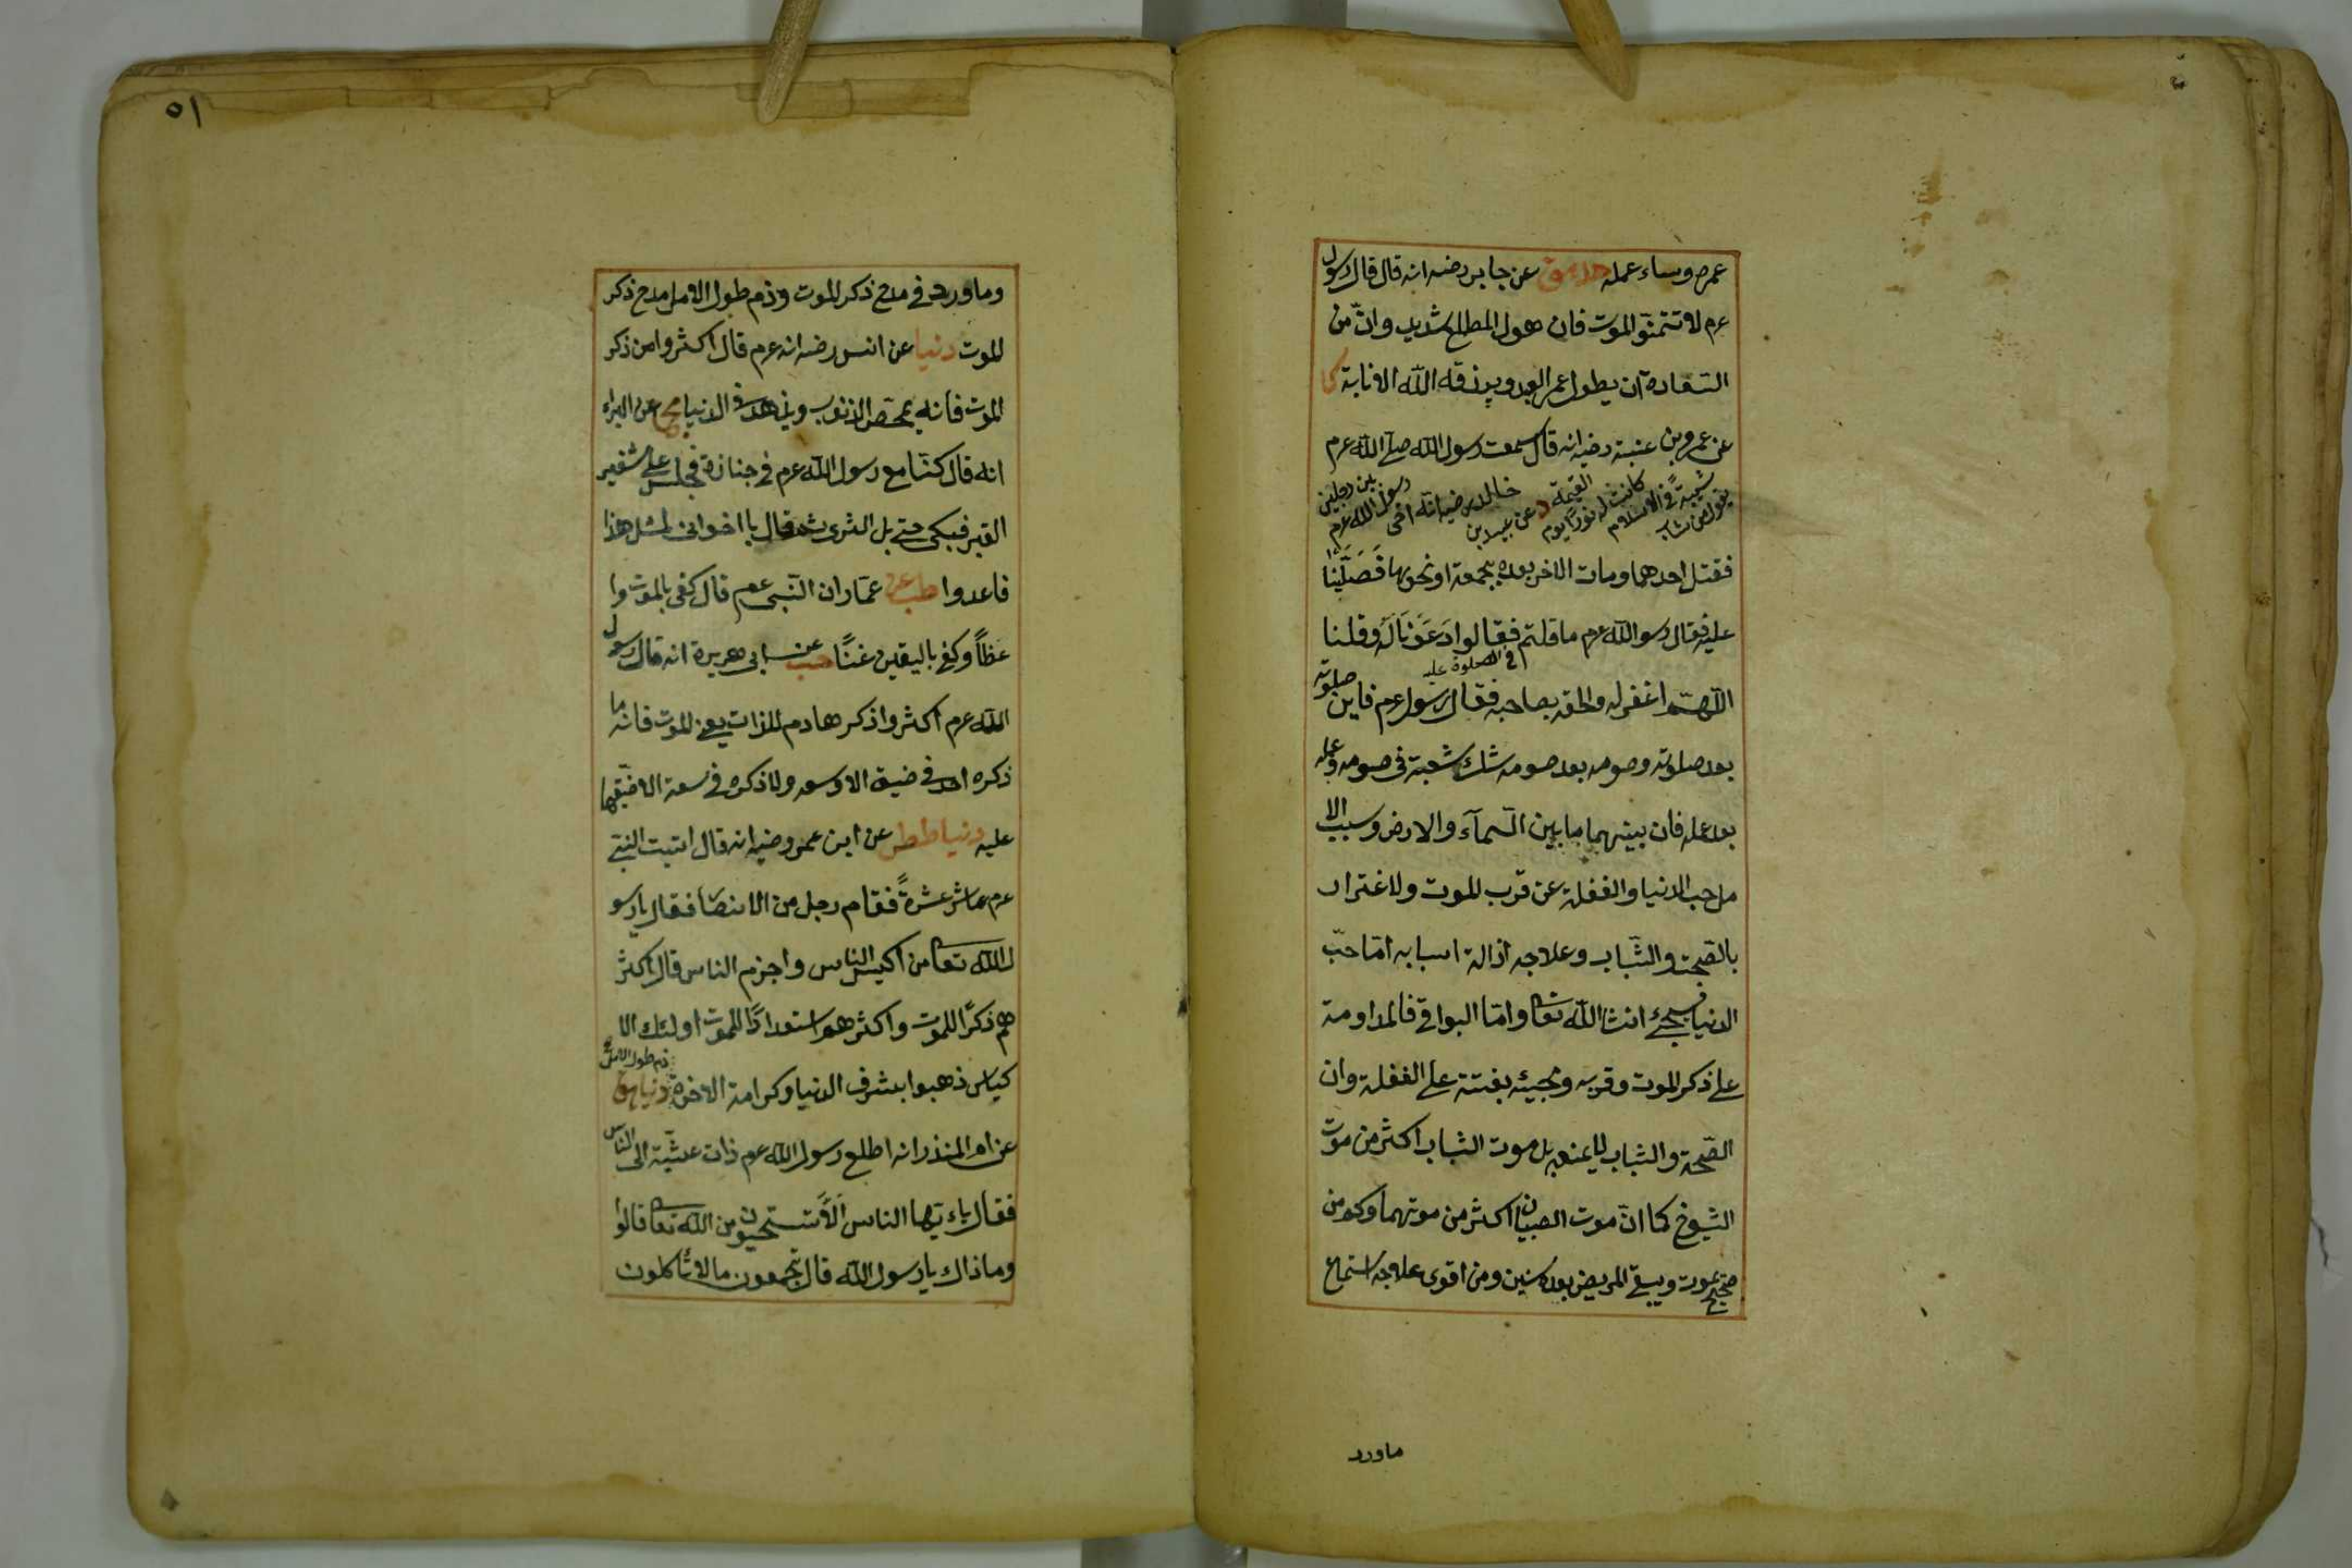 عمره وساء عمله حد هق عن جابر رضه انه قال قال رسول
عم لا تتمنّوا الموت فان هول المطلع شديد وانّ من
السّعادة ان يطول عمر العبد ويرزقه الله الانابة
عن عمرو بن عنبسة رضيه انه قال سمعت رسول الله صلى الله عم
يقول من شاب شيبةً في الاسلام كانت له نورًا يوم القيمة د عن عبيد بن خالد رضيه انّه اخى رسول الله عم بين رجلين
فقتل احدهما ومات الاخر بعده بجمعة او نحوها فَصَلَّيْنَا
عليه فقال رسو الله عم ما قلتم فقالوا دَعَوْنَا لَهُ وقلنا
اللّهمّ اغفر له والحقه بصاحبه فقال رسول عم فاين صلوته
في الصلوة عليه
بعد صلوته وصومه بعد صومه شك شعبة في صومه وعمله
بعد عمله فان بينهما ما بين السّمآء والارض وسبب الا
مل حب الدنيا والغفلة عن قرب الموت ولاغترار
بالصّحة والشّباب وعلاجه ازالة اسبابه امّا حبّ
الدنيا فسيجئ انشا الله تعا وامّا البواقي فالمداومة
على ذكر الموت وقربه ومجيئه بغتة على الغفلة وان
الصّحة والشباب لا يمنعه بل موت الشباب اكثر من موت
الشيوخ كما انّ موت الصبيان اكثر من موتهما وكم من
صحيح يموت ويبقى المريض بعده سنين ومن اقوى علاجه استماع
ماورد
٥١
وماورد في مدح ذكر الموت وذم طول الامل مدح ذكر
الموت دنيا عن انس رضه انه عم قال اكثروا من ذكر
الموت فانه يمحّص الذنوب ويزهد في الدنيا مج عن البراء
انه قال كنّا مع رسول الله عم في جنازة فجلس على شفير
القبر فبكى حتى بل الثرى ثم قال يا اخوانى لمثل هذا
فاعدوا طب عن عمّار ان النّبى عم قال كفى بالموت وا
عظًا وكفى باليقين غنًا حب عن ابى هريرة انه قال رسول
الله عم اكثروا ذكر هادم اللذات يعنى الموت فانه ما
ذكره احد في ضيق الا وسعه ولا ذكره في سعة الا ضيّقها
عليه دنيا طط عن ابن عمر رضيه انه قال اتيت النبى
عم عاشر عشرةً فقام رجل من الانصا فقال يا رسو
ل الله تعا من اكيس الناس واحزم الناس قال اكثر
هم ذكرًا للموت واكثرهم استعدادًا للموت اولئك الا
كياس ذهبوا بشرف الدنيا وكرامة الاخرة ذم طول الامل دنيا هق
عن ام المنذر انه اطلع رسول الله عم ذات عشيّة الى الناس
فقال ياءيّها الناس اَلَا تستحيون من الله تعا قالوا
وما ذاك يا رسول الله قال تجمعون مالا تأكلون